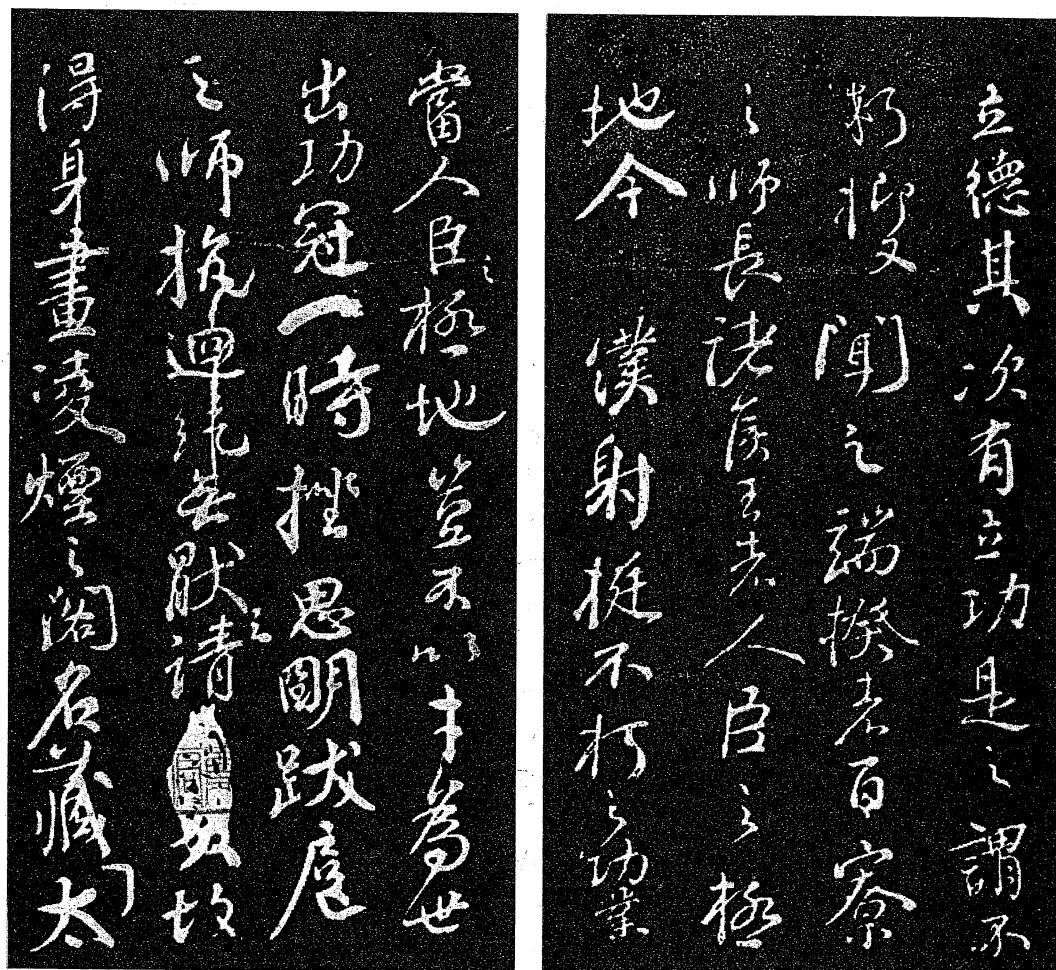 立德其次有立功是之謂不
朽抑又聞之端揆者百寮
之師長諸侯王者人臣之極
地今僕射挺不朽之功業
當人臣之極地豈不以才為世
出功冠一時挫思明跋扈
之師抗迴紇無猒之請
故
得身畫凌煙之閣名藏太